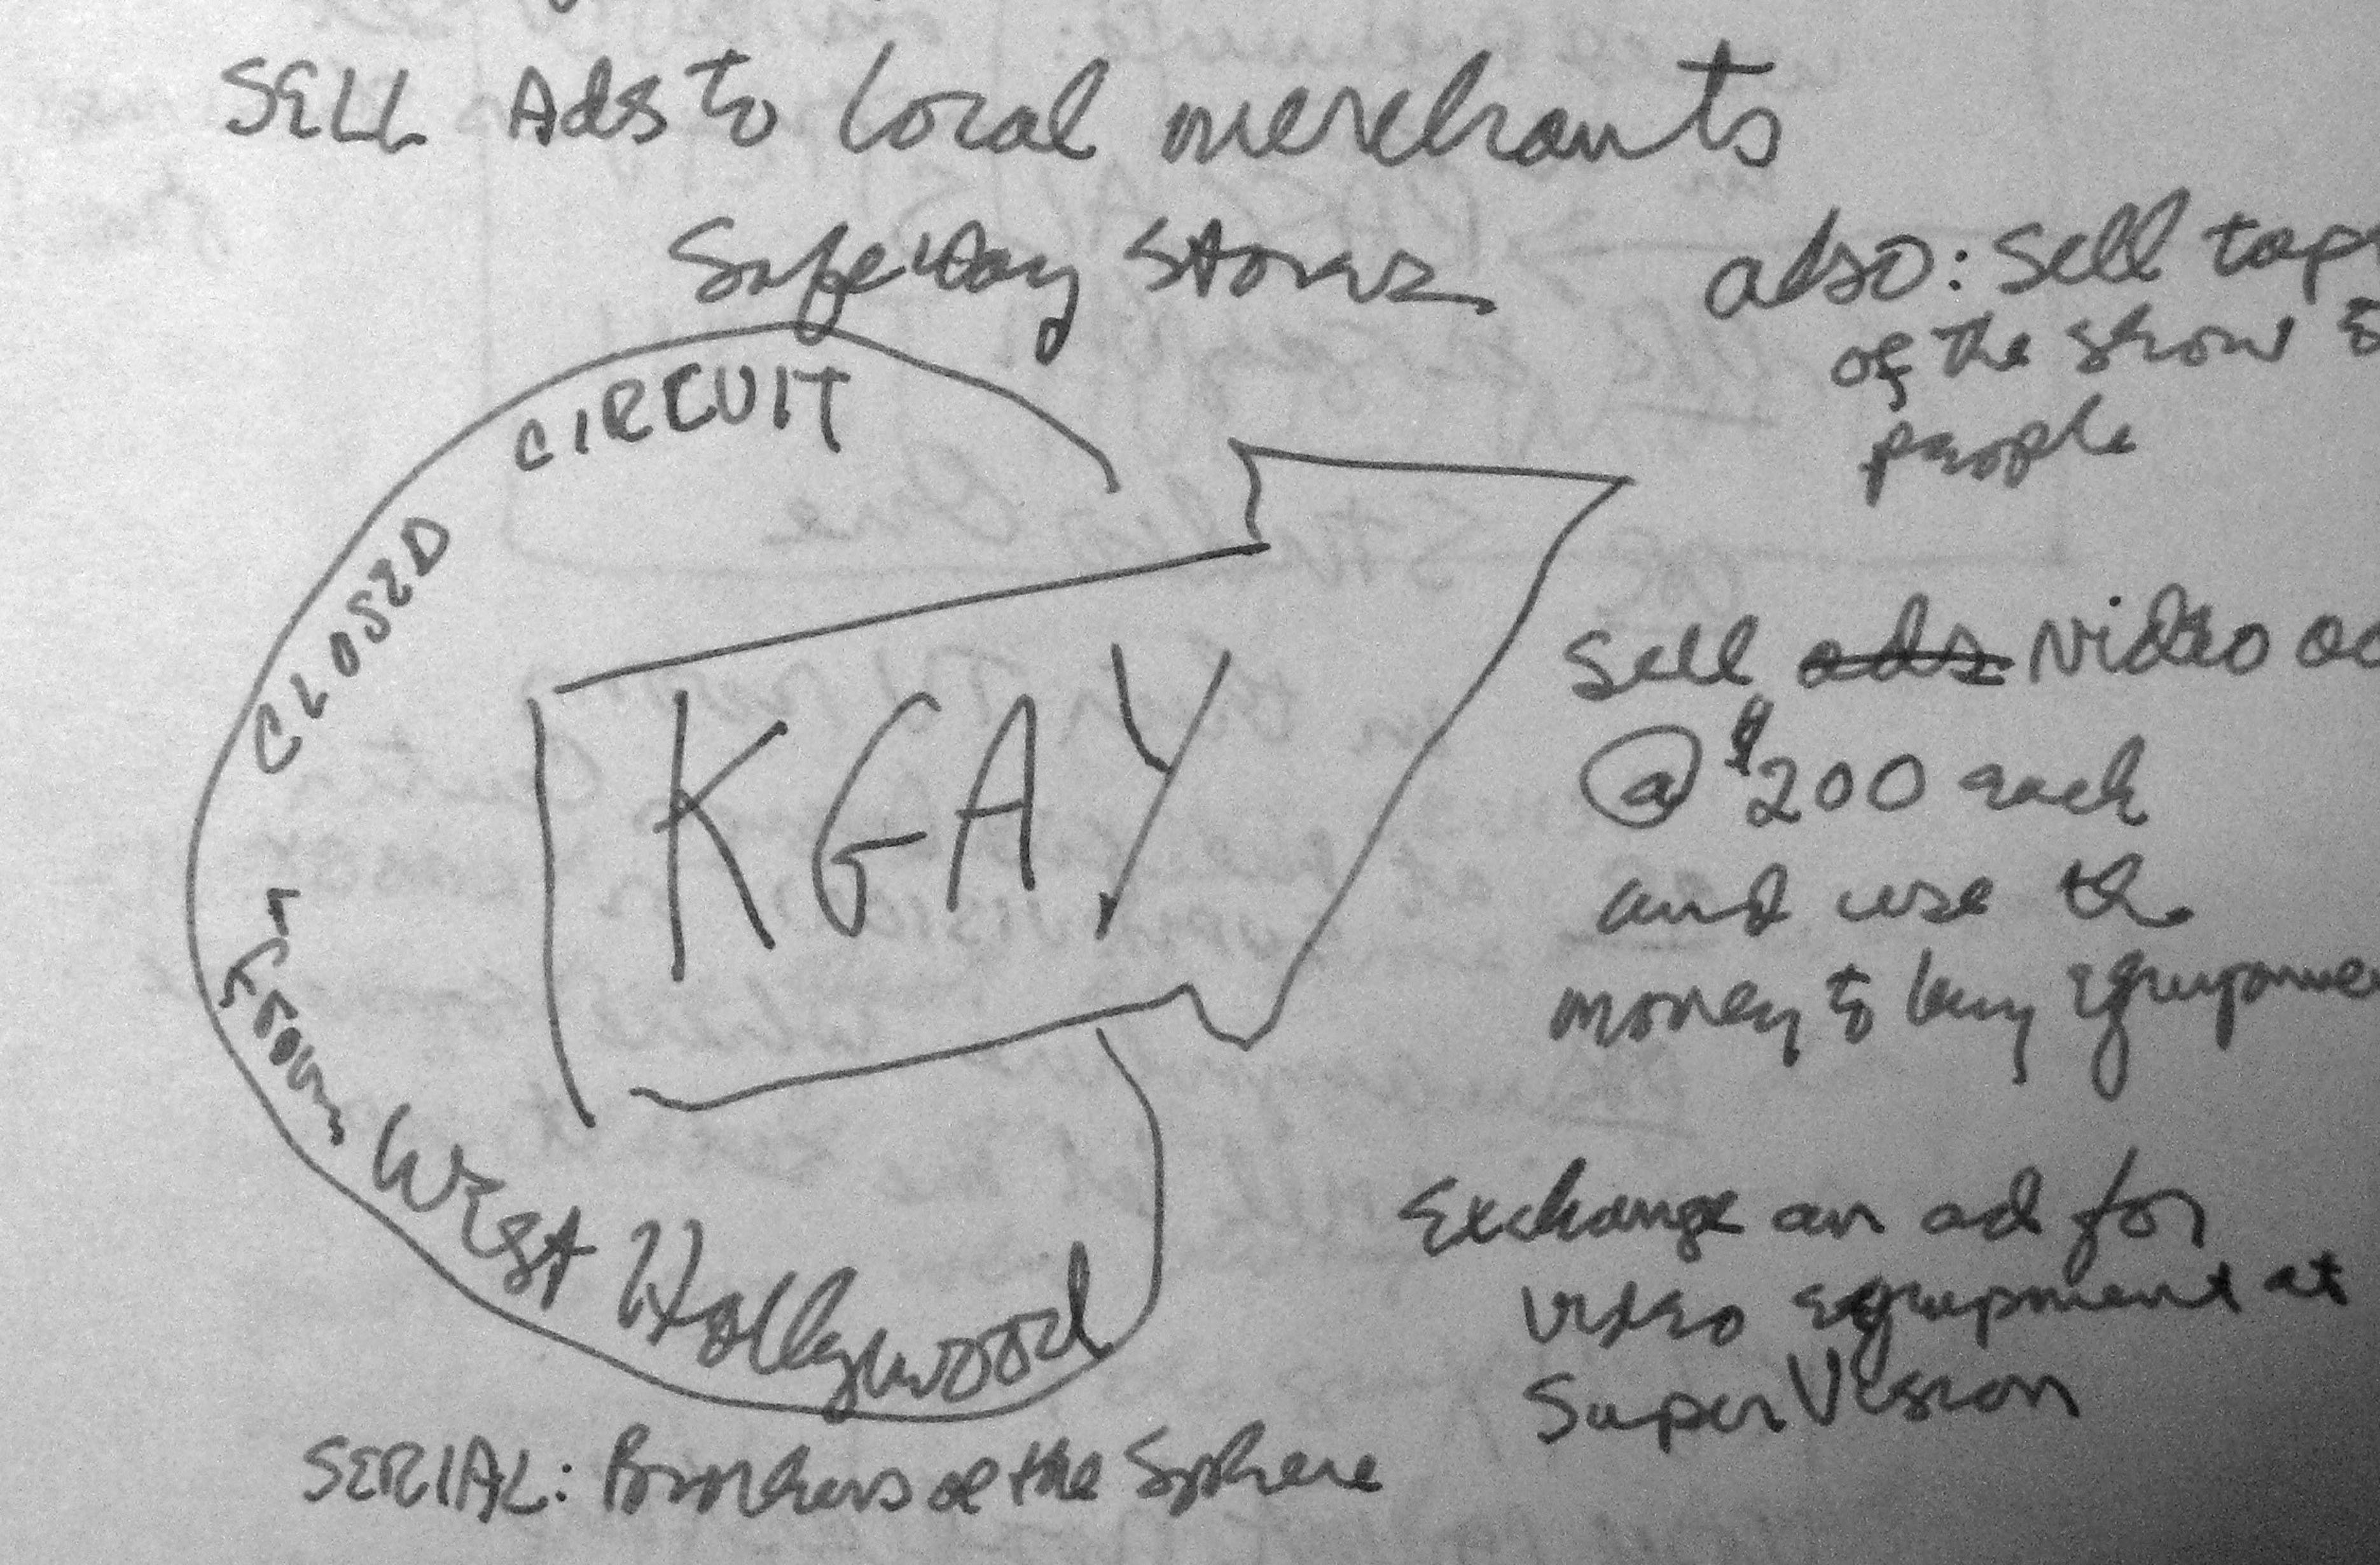 SELL Ads to local merchants
Safeway Stores
also: Sell tap
of the show
people
CLOSED CIRCUIT
KGAY
from West Hollywood
Sell ads Video ad
@ $200 each
and use the
money to buy equipme
Exchange an ad for
video equipment at
SuperVision
SERIAL: Brothers of the Sphere